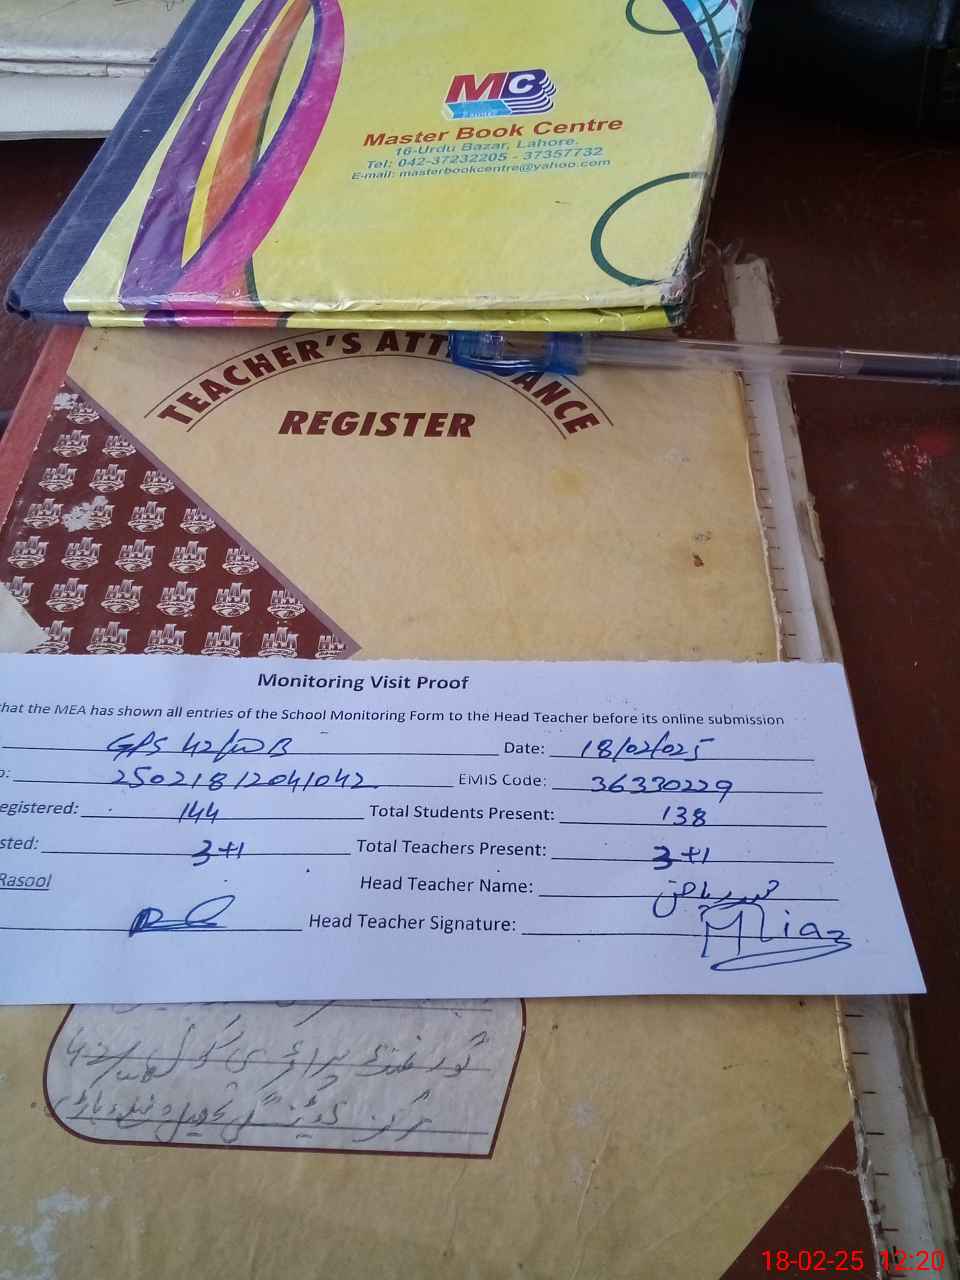 MB
Master Book Centre
16-Urdu Bazar, Lahore.
Tel: 042-37232205 - 37357732
E-mail: masterbookcentre@yahoo.com
TEACHER'S ATT ANCE
REGISTER
Monitoring Visit Proof
that the MEA has shown all entries of the School Monitoring Form to the Head Teacher before its online submission
GPS 42/WB Date: 18/02/025
o: 25021812041042 EMIS Code: 36330229
egistered: 144 Total Students Present: 138
sted: 3+1 Total Teachers Present: 3+1
Rasool Head Teacher Name:
Head Teacher Signature:
18-02-25 12:20